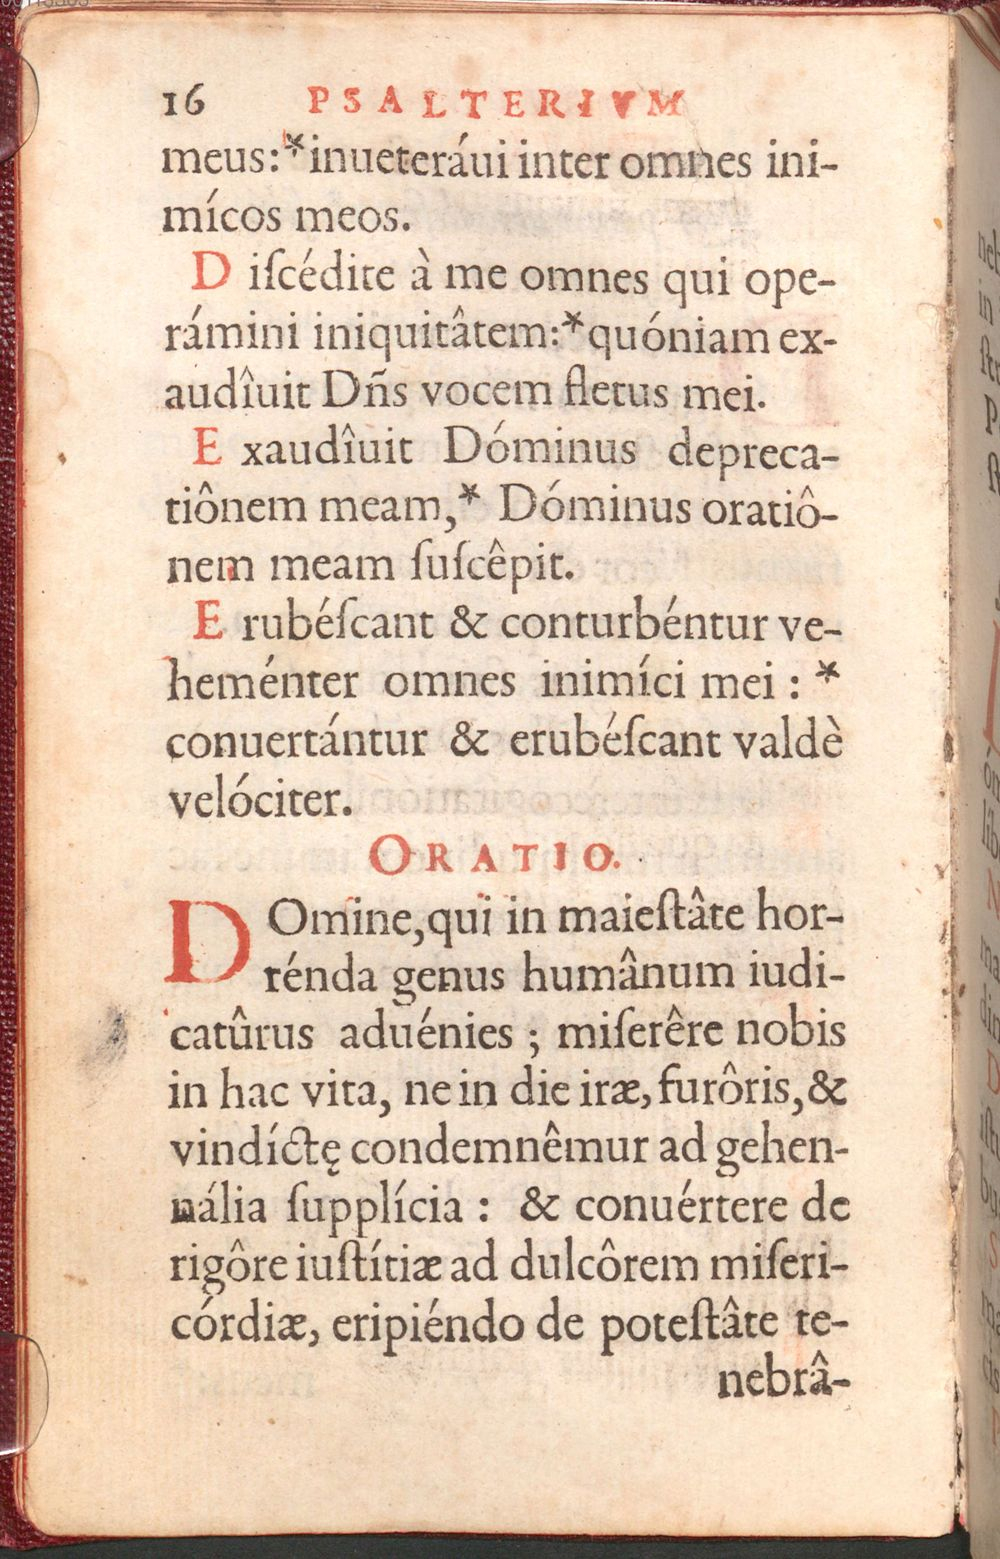 16 PSALTERIVM
meus:*inueteráui inter omnes ini-
mícos meos.
D iſcédite à me omnes qui ope-
rámini iniquitâtem:*quóniam ex-
audîuit Dñs vocem fletus mei.
E xaudîuit Dóminus depreca-
tiônem meam,* Dóminus oratiô-
nem meam ſuſcêpit.
E rubéſcant & conturbéntur ve-
heménter omnes inimíci mei : *
conuertántur & erubéſcant valdè
velóciter.
ORATIO.
DOmine,qui in maieſtâte hor-
rénda genus humânum iudi-
catûrus aduénies ; miſerêre nobis
in hac vita, ne in die iræ, furôris, &
vindíctę condemnêmur ad gehen-
nália ſupplícia : & conuértere de
rigôre iuſtítiæ ad dulcôrem miſeri-
córdiæ, eripiéndo de poteſtâte te-
nebrâ-